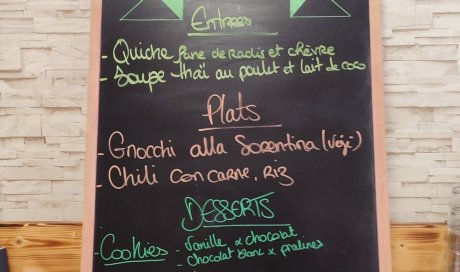 Entrées
- Quiche fane de radis et chèvre
- Soupe thaï au poulet et lait de coco
Plats
- Gnocchi alla Sorentina (végé)
- Chili con carne, riz
DESSERTS
- Cookies - Vanille x chocolat
- chocolat blanc x pralines